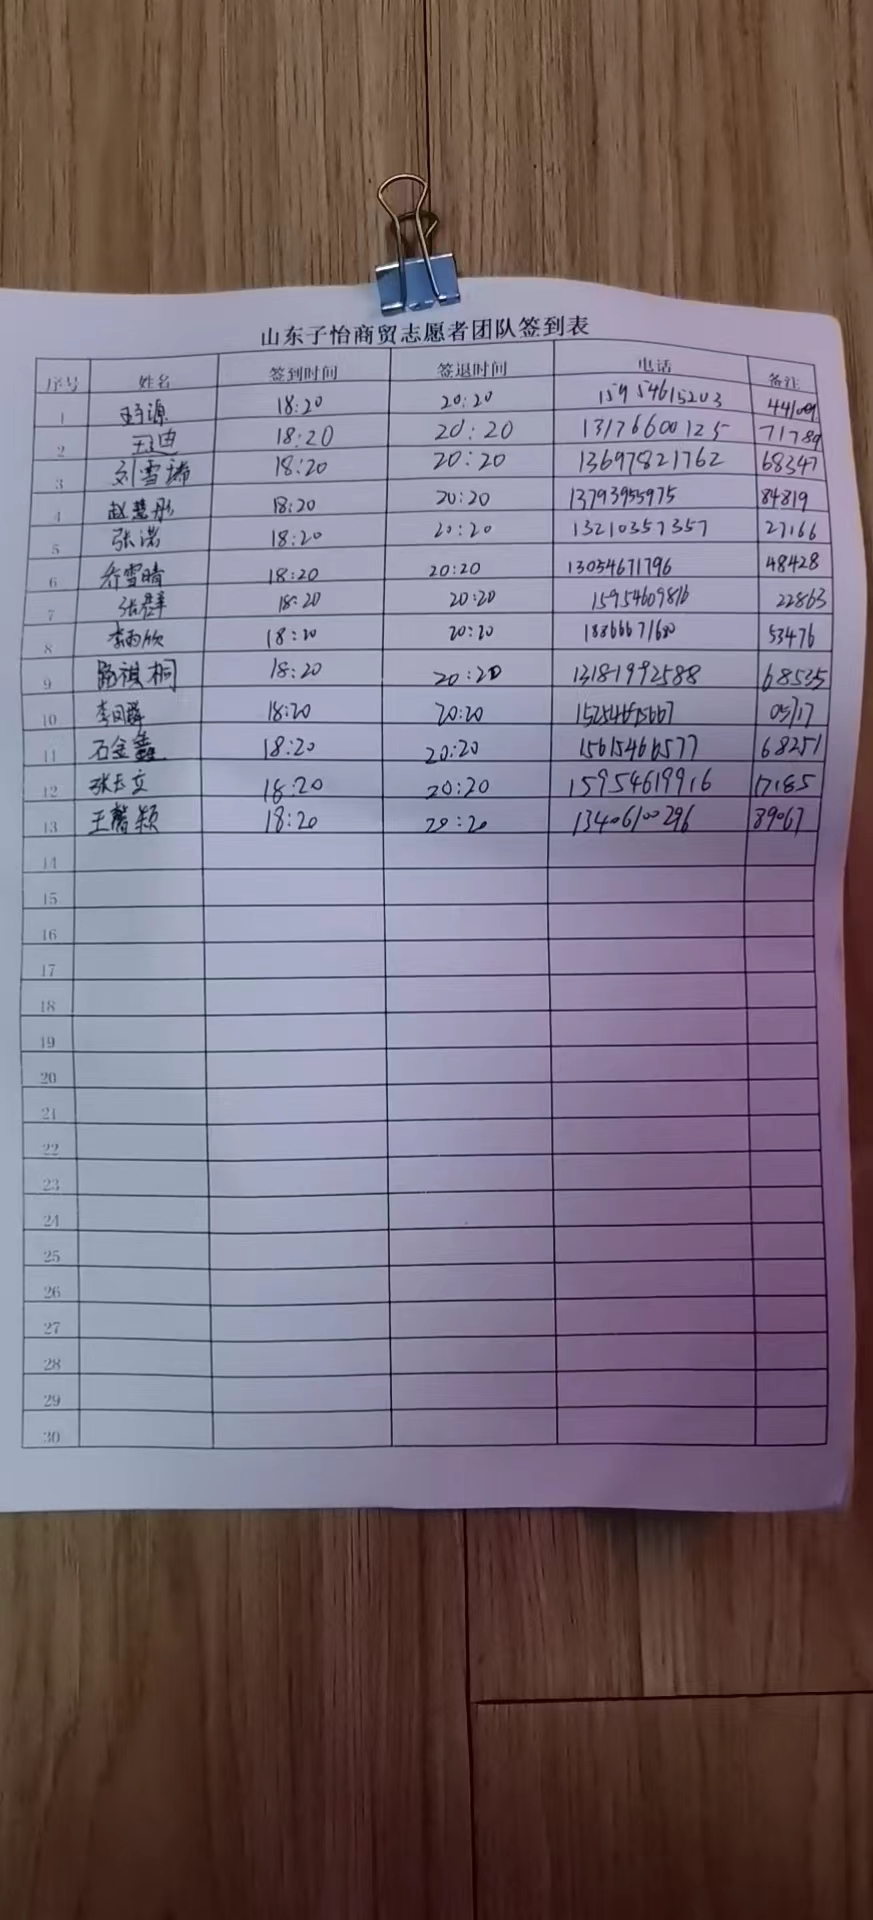 山东子怡商贸志愿者团队签到表
序号 姓名 签到时间 签退时间 电话 备注
1 18:20 20:20 15954615203
2 王迪 18:20 20:20 13176600125 71789
3 刘雪瑞 18:20 20:20 13697821762 68347
4 赵慧彤 18:20 20:20 13793955975 84819
5 张诺 18:20 20:20 13210357357 27166
6 乔雪晴 18:20 20:20 13054671796 48428
7 张群 18:20 20:20 15954609816 22863
8 李雨欣 18:20 20:20 18866671680 53476
9 路祺桐 18:20 20:20 13181992588 68535
10 18:20 20:20 05717
11 石金鑫 18:20 20:20 15615466577 68251
12 18:20 20:20 15954619916 17185
13 王馨颖 18:20 20:20 13406100296 89067
14
15
16
17
18
19
20
21
22
23
24
25
26
27
28
29
30